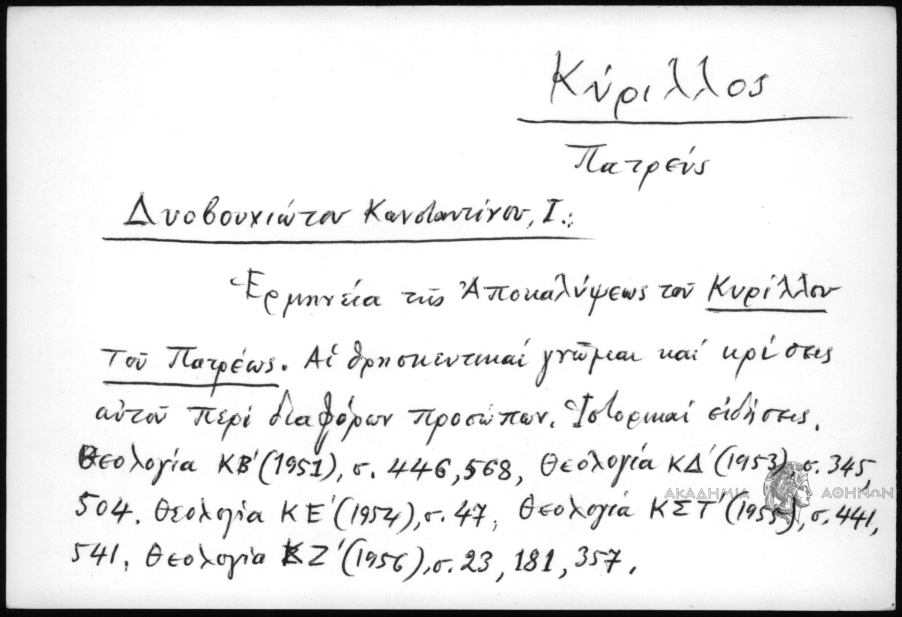 Κύριλλος
Πατρεύς
Δυοβουνιώτου Κωνσταντίνου, Ι.:
Ἑρμηνεία τῆς Ἀποκαλύψεως τοῦ Κυρίλλου
τοῦ Πατρέως. Αἱ θρησκευτικαί γνῶμαι καί κρίσεις
αὐτοῦ περί διαφόρων προσώπων. Ἱστορικαί εἰδήσεις.
Θεολογία ΚΒ΄(1951), σ. 446, 568, Θεολογία ΚΔ΄(1953), σ. 345,
504. Θεολογία ΚΕ΄(1954), σ. 47, Θεολογία ΚΣΤ΄(1955), σ. 441,
541, Θεολογία ΚΖ΄(1956), σ. 23, 181, 357.
ΑΚΑΔΗΜΙΑ ΑΘΗΝΩΝ